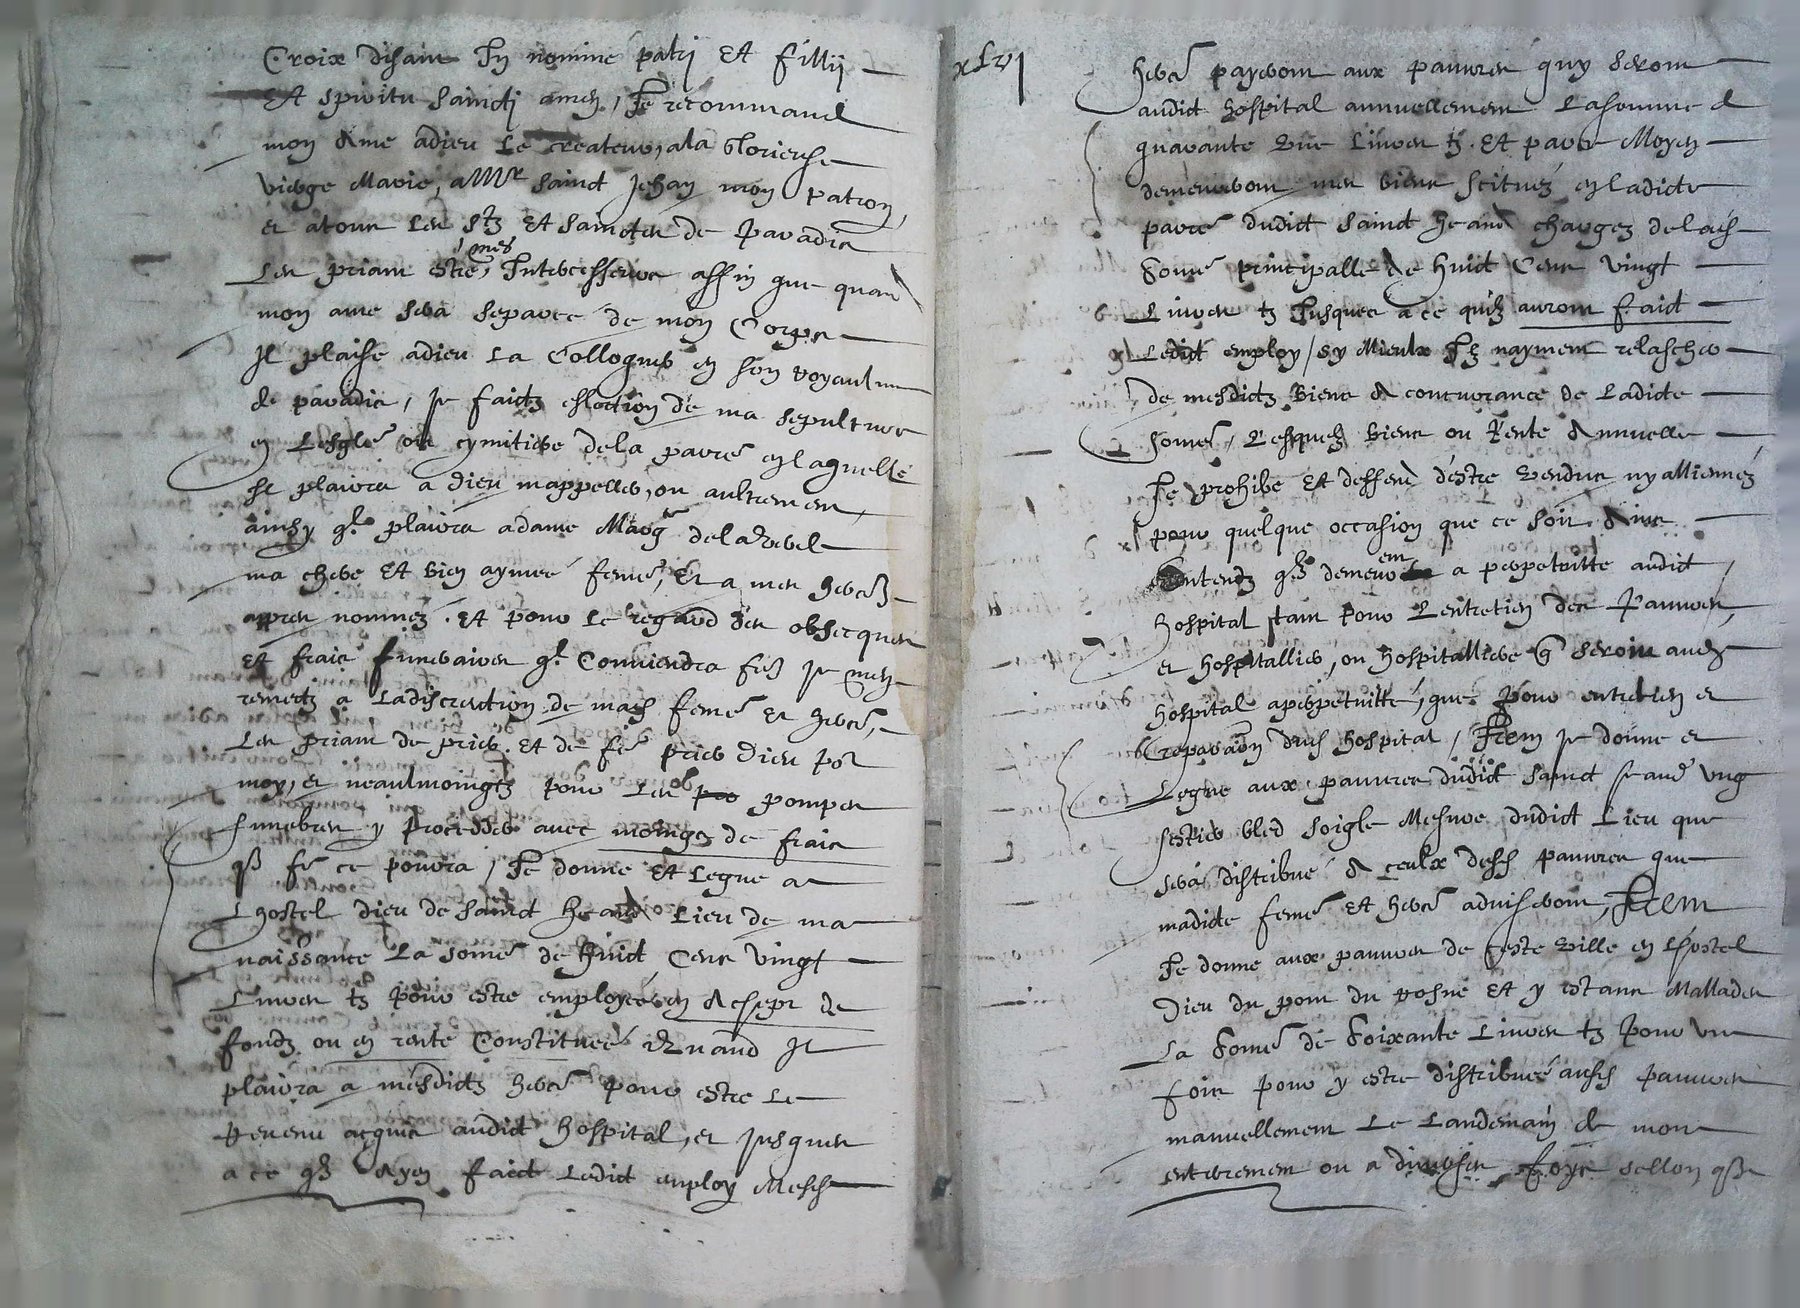 Croix disant In nomine patrj Et fillij
Et spiritu Sanctj amen, Je recommand
mon Ame adieu Le createur, ala Glorieuse
vierge Marie, a Mr Sainct Jehan mon patron,
et a tous Les Stz Et Sainctes de Paradis
Les priant estre, mes Intercesseurs affin que quand
mon ame sera separee de mon Corps
Il plaise adieu La Colloquer en son royaulme
de paradis, Je faictz eslection de ma sepulture
en Lesglé ou cymitiere dela parré en laquelle
Il plaira a Dieu mappeller, ou aultrement,
ainsy ql plaira a dame Marg dela
ma chere Et bien aymeé femé, Et a mes hers
appres nommez. Et pour Le regard des obsecques
Et frais funeraires ql Conviendra fé Je men
remectz a Ladiscrection de mad femé et hers,
Les priant de prier. Et de fé prier Dieu por
moy, et neaulmoingtz pour Les pompes
funebres y proceder avec moings de frais
q fé ce pourra, Je donne Et Legue a
Lhostel dieu de Sainct Jeand Lieu de ma
naissance La somé de huict Cens vingt
Livres tz pour estre employeé en Achept de
fondz ou en rente Constitueé Quand Il
plaira a mesdictz hers pour estre Le
Revenu acquis audict hospital, et jusques
a ce qlz Ayen faict Ledict employ Mesd
xLvj
hers payeront aux pauvres quy seront
audict hospital annuellement Lasomme de
quarante une Livres tz. Et par ce Moyen
demeureront mes biens scituez en ladicte
parré dudict Sainct Jeand chargez delad
Somé principalle de huict Cens vingt
Livres tz Jusques a ce quilz auront faict
Ledict employ / sy Mieulx Ilz nayment relascher
de mesdictz Biens A concurance de Ladicte
Somé, Lesquelz Biens ou Rente Annuelle
Je prohibe Et deffend destre vendus ny alliennéz
pour quelque occasion que ce soit. Ains
Entendz qlz demeurent a perpetuitte audict
hospital tant pour Lentretien des Pauvres,
et hospitallier, ou hospitalliere q seront aud
hospital aperpetuitté, que pour entretien et
reparaon dud hospital, Item Je donne et
Legue aux pauvres dudict Sainct Jeand ung
sestier bled soigle Mesure dudict Lieu que
sera distribué A ceulx desd pauvres que
madicte femé Et hers adviseront, Item
Je donne aux pauvres de ceste Ville en Lhostel
Dieu du pont du rosne Et y estans Mallades
La Somé de Soixante Livres tz pour une
fois pour y estre distribueé ausd pauvres
manuellement Le Landemain de mon
enterrement ou a diverses foys sellon q